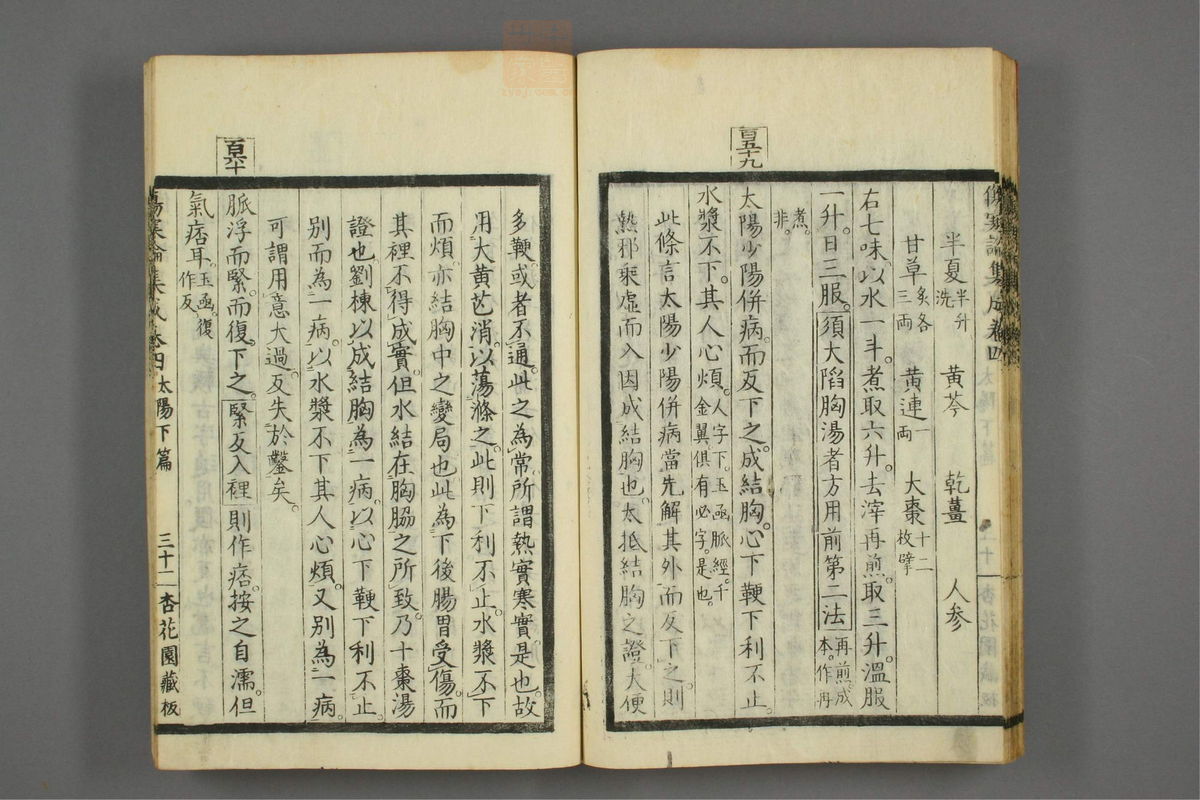 百五十九
半夏半升洗 黃芩 乾薑 人参
甘草炙各三両 黄連一両 大棗十二枚擘
右七味。以水一斗。煮取六升。去滓。再煎取三升。溫服
一升。日三服。須大陷胸湯者方用前第二法再煎成本。作再
煮。非。
太陽少陽併病。而反下之。成結胸。心下鞕。下利不止。
水漿不下。其人心煩。人字下。玉函脈經。千金翼。俱有必字。是也。
此條言太陽少陽併病。當先解其外。而反下之。則
熱邪乘虛而入因成結胸也。大抵結胸之證。大便
百六十
多鞕。或者不通。此之為常。所謂熱實寒實。是也。故
用大黄芒消。以蕩滌之。此則下利不止。水漿不下
而煩。亦結胸中之變局也。此為下後腸胃受傷。而
其裡不得成實。但水結在胸脇之所致。乃十棗湯
證也。劉棟以成結胸為一病。以心下鞕下利不止。
別而為一病。以水漿不下其人心煩。又別為一病。
可謂用意大過。反失於鑿矣。
脈浮而緊。而復下之。緊反入裡。則作痞。按之自濡。但
氣痞耳。玉函。復作反
傷寒論集成卷四 太陽下篇 三十二 杏花園藏板
傷寒論集成卷四